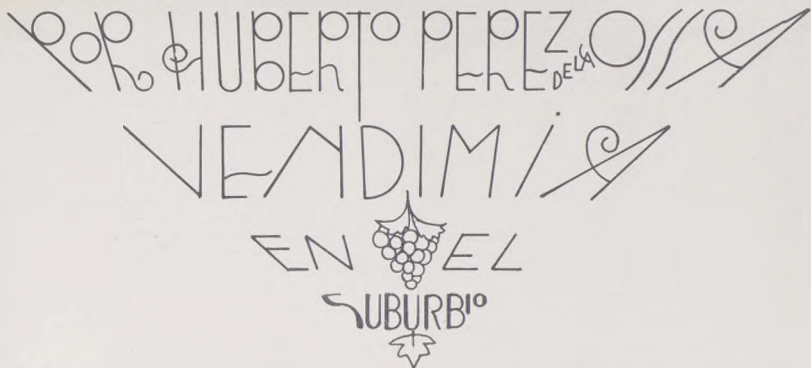 POR HUBERTO PEREZ DE LA OSSA
VENDIMIA
EN EL
SUBURBIO